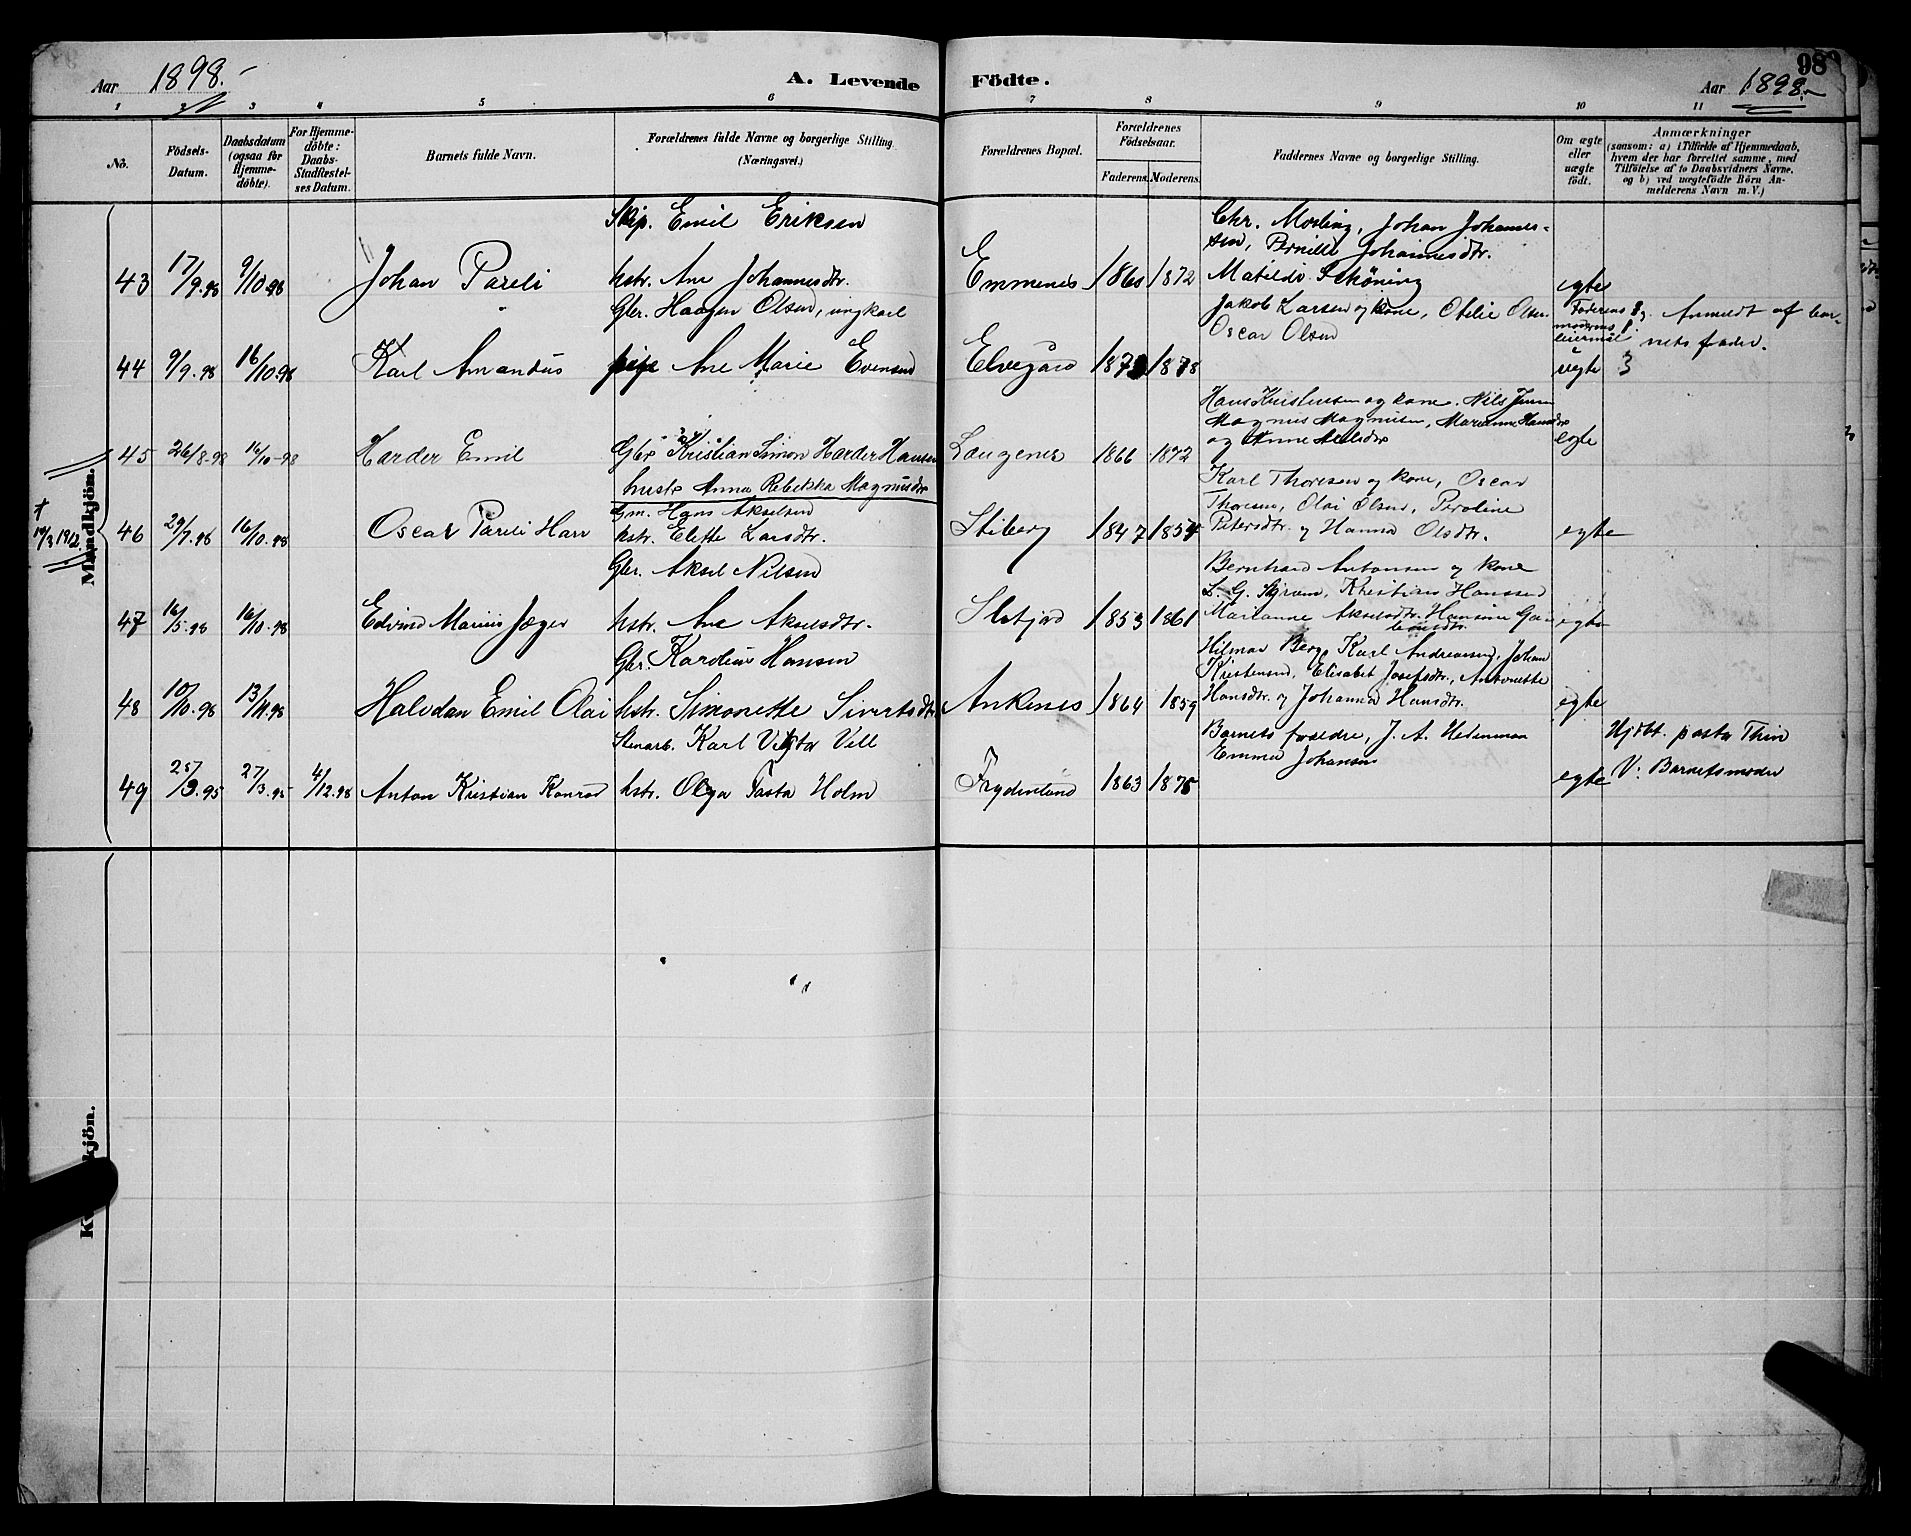 Aar 1898.
A. Levende Födte.
98
Aar 1898.
1 2 3 4 5 6 7 8 9 10 11
No.
Födsels-Datum.
Daabsdatum (ogsaa for Hjemme-döbte).
For Hjemme-döbte: Daabs-Stadfæstel-ses Datum.
Barnets fulde Navn.
Forældrenes fulde Navne og borgerlige Stilling. (Næringsvei.)
Forældrenes Bopæl.
Forældrenes Födselsaar.
Faderens. Moderens.
Faddernes Navne og borgerlige Stilling.
Om ægte eller uægte födt.
Anmærkninger
(saasom: a) i Tilfælde af Hjemmedaab, hvem der har forrettet samme, med Tilföielse af to Daabsvidners Navne, og b) ved uægtefödte Börn An-melderens Navn m. V.)
Mandkjön.
Skip. Emil Eriksen
Chr. Morling, Johan Johannes-
sen, Pernille Johannesdtr.
43 17/9.98 9/10.98 Johan Pareli hstr. Ane Johannesdtr. Emmenes 1860 1872 Matilde Schöning egte
Gbr. Haagen Olsen, ungkarl
Jakob Larsen og kone, Otelie Olsen
Faderens 8 Anmeldt af bar-
Oscar Olsen
moderens 1 leiermål nets fader.
44 9/9.98 16/10.98 Karl Amandus pige Ane Marie Evensen Elvegård 1873 1878 uegte
Hans Kristensen og kone, Nils Jensen
Magnus Magnusen, Marianne Hansdtr
45 26/8-98 16/10-98 Harder Emil Gbr Kristian Simon Harder Hansen Laugenes 1866 1872 og Anne Nilsdtr egte
hustr Anna Rebekka Magnusdtr
Karl Thoresen og kone, Oscar
Gm. Hans Akselsen
Thoresen, Olai Olsen, Peroline
† 19/3 1912.
46 29/7.98 16/10.98 Oscar Pareli Harr hstr. Elette Larsdtr. Stiberg 1847 1854 Petersdtr. og Hanna Olsdtr. egte
Gbr. Aksel Nilsen
Bernhard Antonsen og kone
Kristian Hanssen
47 16/5.98 16/10.98 Edvind Marius Jæger hstr. Ane Akselsdtr. 1853 1861 Marianne Akselsdtr. egte
Gbr. Hansen
Hilmar Berg, Karl Andreassen, Johan
Kristensen, Elisabet Josefsdtr, Antonette
48 10/10.98 13/11.98 Halvdan Emil Olai hstr. Simonette Sivertsdtr Ankenes 1864 1859 Hansdtr. og Johanna Hansdtr. egte
Stenarb. Karl Viktor Vell
Barnets foreldre, J. A. Hedenman
Hjdbt. pastor Thin
Emma Johansen
49 25/3.95 27/3.95 4/12.98 Anton Kristian Konrad hstr. Olga Tasta Holm Frydenlund 1863 1875 egte V: Barnets moder